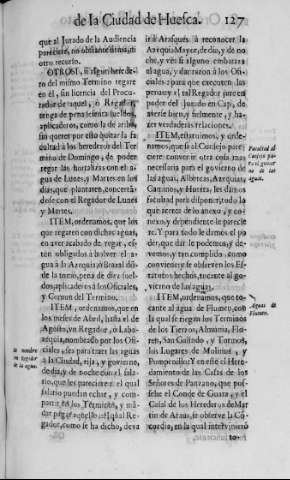 de la Ciudad de Huesca. 127
que al Jurado de la Audiencia
pareciere, no obstante firma, ni
otro recurso.
OTROSI, si algun herede-
ro del mismo Termino regare
en èl, sin licencia del Procu-
rador de aquel, ò Regador,
tenga de pena sesenta sueldos,
aplicaderos, como la de arriba,
sin querer por esto quitar la fa-
cultad à los herederos del Ter-
mino de Domingo, de poder
regar las hortalizas con el a-
gua de Lunes, y Martes en los
dias, que plantaren, concertã-
dose con el Regador de Lunes
y Martes.
ITEM, ordenamos, que los
que regaren con dichas aguas,
en aver acabado de regar, es-
tèn obligados à bolver el a-
gua à la Arquia
de la tomò, pena de diez suel-
dos, aplicaderos à los Oficiales,
y Comun del Termino.
ITEM, ordenamos, que en
los meses de Abril, hasta el de
Agosto, un Regador, ò Laba-
cequia, nombrado por los Ofi-
ciales, para traer las aguas
à la Ciudad, rija, y govierne,
de dia, y de noche con el sala-
rio, que les pareciere: el qual
salario puedan echar, y com-
partir en los Terminos, y mã-
dar al qual Re-
gador, como se ha dicho, deva
ir à Arasquès à reconocer la
Arquia Mayor, de dia, y de no-
che, y ver si alguno embaraza
el agua, y dar razon à los Ofi-
ciales para que executen las
penas, y el tal Regador jure en
poder del Jurado en Cap, de
averse bien, y fielmente, y ha-
zer verdaderas relaciones.
ITEM, estatuimos, y orde-
namos, que si al Consejo pare-
ciere convenir otra cosa mas
necessaria para el govierno de
las aguas, Albercas, Arquias,
Caminos, y Huerta, les damos
facultad para disponer, todo lo
que acerca de lo anexo, y co-
nexo, y dependiente le parecie-
re. Y para todo le damos el po-
der, que dàr le podemos, y de-
vemos, y tan cumplido, como
conviene, y se observen los Es-
tatutos hechos, tocante al go-
vierno de las aguas.
ITEM, ordenamos, que to-
cante al agua de Flumen, con
la qual se riegan los Terminos
de los Tierzos, Almunia, Flo-
ren, San Galindo, y Tormos,
los Lugares de Molinos, y
Pompenillo, y en el de el Hereda-
miento de las Casas de los
Señores de Panzano, que pos-
see el Conde de Guara, y el
Casal de los Herederos de Mar-
tin de Araus, se observe la Cõ-
cordia, en la qual intervinierõ
to-
Facultad al
Consejo pa-
ra el govier-
no de las
aguas.
Aguas de
Flumen.